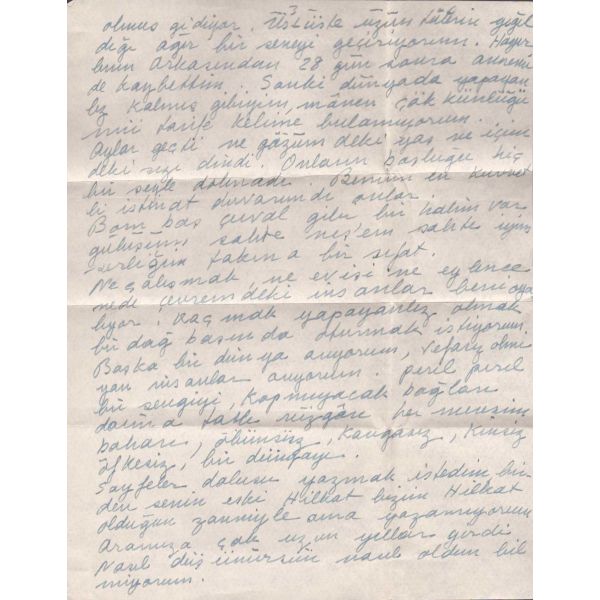 3
olmuş gidiyor. Üstüste üzüntülerin yığıl
dığı ağır bir seneyi geçiriyorum.
bunun arkasından 28 gün sonra annemi
de kaybettim. Sanki dünyada yapayan
lız kalmış gibiyim, mânen çök künlüğü
mü tarife kelime bulamıyorum.
Aylar geçti ne gözüm deki yaş ne içim
deki sızı dindi. Onların boşluğu hiç
bir şeyle dolmadı. Benim en kuvvet
li istinat duvarımdı onlar.
Bom boş çuval gibi bir halim var
gülüşüm sahte neş'em sahte iyim
serliğim takma bir sıfat.
Ne çalışmak, ne ev işi ne eylence
nede çevremdeki insanlar beni oya
lıyor. Kaçmak yapayanlız olmak
bir dağ başında oturmak istiyorum.
Başka bir dünya arıyorum, vefasız olmı
yan insanlar arıyorum. pırıl pırıl
bir sevgiyi, kopmıyacak bağları
daima tatlı rüzgârı her mevsim
baharı, ölümsüz, kavgasız, kinsiz
öfkesiz, bir dünyayı.
Sayfeler dolusu yazmak istedim bir
den senin eski Hilkat bizim Hilkat
olduğun zanniyle ama yazamıyorum
Aramıza çok uzun yıllar girdi
Nasıl düşünürsün nasıl oldun bil
miyorum.